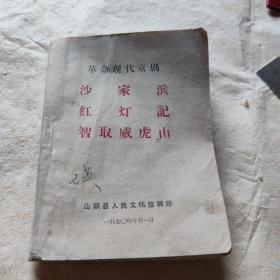 革命现代京剧
沙家浜
红灯記
智取威虎山
山阴县人民文化馆翻印
一九七〇年十月一日